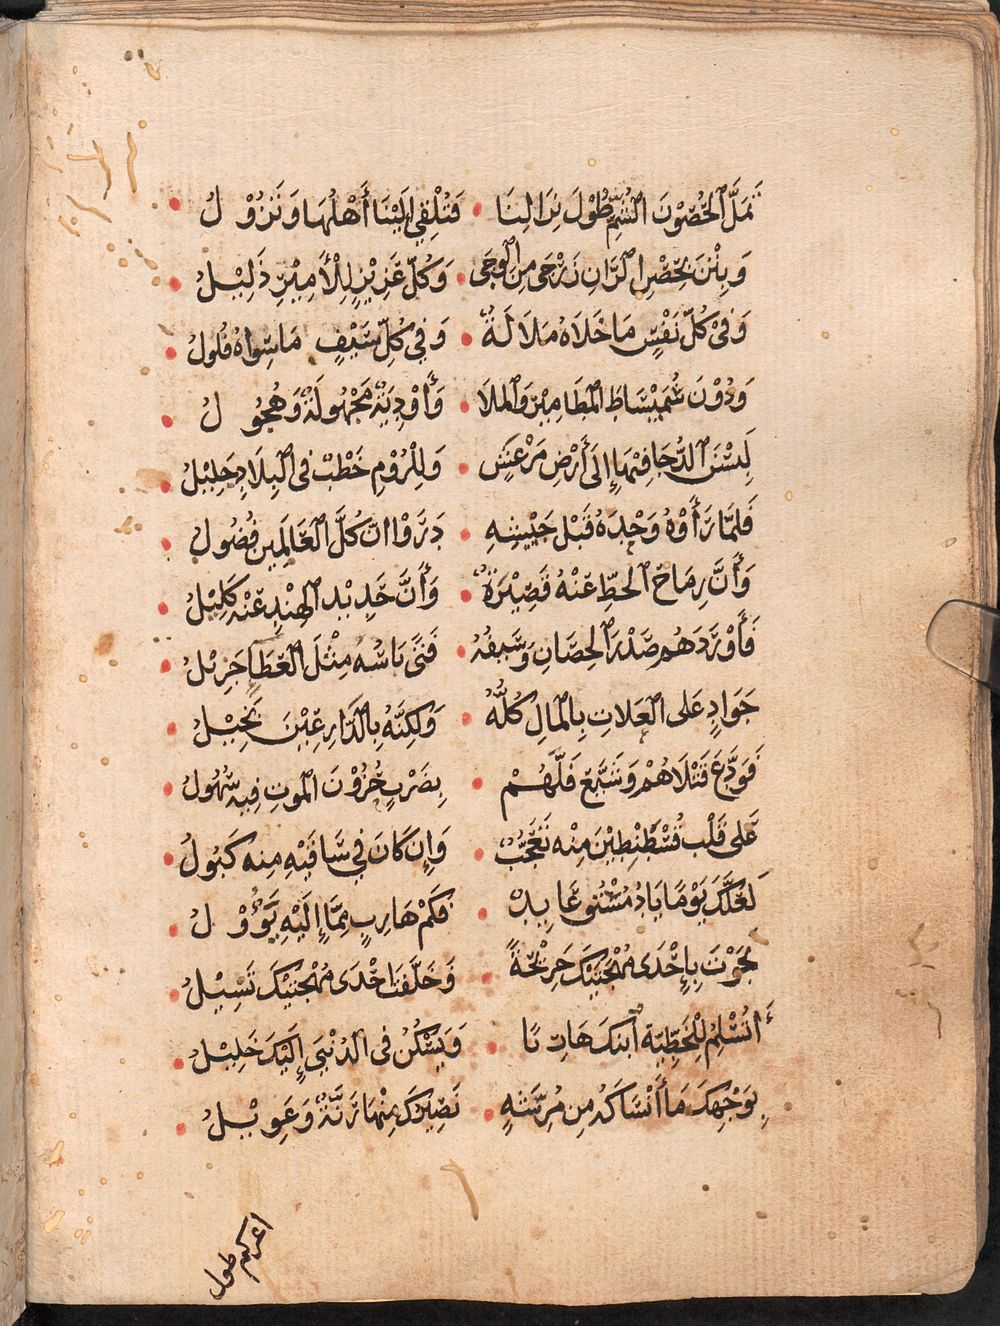 تَمَلُّ الحُصُوْنَ الشُّمّ طُوْلَ نِزَالِنَا • فَتُلْقِي اِلَيْنَا أَهْلَهَا وَتَزُوْلُ
وَبِتْنَ بحِصْنِ الرَّانِ رَزْحَى مِنَ الوَجَى • وَكُلّ عَزِيْزٍ لِلْأَمِيْرِ ذَلِيْلُ
وَفِيْ كُلّ نَفْسٍ مَا خَلَاهُ مَلَالَةٌ • وَفِي كُلِّ سَيْفٍ مَاسِوَاهُ فُلُولُ
وَدُوْنَ سُمَيْسَاطَ المَطَامِيْرُ وَالمَلَا • وَأَوْدِيَةٌ مَجْهُولَةٌ وَهُجُولُ
لَبِسْنَ الدُّجَا فِيْهَا إِلَى أَرْضِ مَرْعَشٍ • وَلِلْرُوْمِ خَطْبٌ فِي البِلَادِ جَلِيْلُ
فَلمَّا رَأَوْهُ وَحْدَهُ قَبْل جَيْشِهِ • دَرَوْا انّ كُلَّ العَالَمِيْن فُضُولُ
وَأَنَّ رِمَاحَ الخطِّ عَنْهُ قَصِيْرَةٌ • وَأَنَّ حَدِيْد الهِنْدِ عَنْه كَلِيْلُ
فَأَوْرَدَهُم صَدْرَ الحِصَانِ وَسَيفُهُ • فَتًى بَاسُهُ مِثْلُ العَطَا جَزِيْلُ
جَوَادٍ عَلى العَلاتِ بِالمَالِ كُلّهُ • وَلكِنَّهُ بِالدَّارِعِيْنَ بَخِيْلُ
فَوَدَّعَ قَتْلَاهُمْ وَشَيّعَ فَلّهُمْ • بِضَرْبٍ حُزُوْنَ المَوتِ فِيهِ سُهُولُ
عَلى قَلْب قُسْطَنْطِيْنَ مِنْه تَعَجّبٌ • وَإِن كَانَ فِي سَاقَيْهِ مِنه كَبُولُ
لَعَلّكَ يَوْمًا يَا دُمُسْتُقُ عَايِدٌ • فَكَمْ هَارِبٍ مِمَّا إِلَيْهِ يَؤُوْلُ
نَجَوْتَ بِإِحْدَى مُهْجَتَيْكَ جَرِيْحَةً • وَخَلّفتَ احْدَى مُهْجَتَيْكَ تَسِيْلُ
أَتُسْلِمُ لِلْخَطِّيّةِ ابنَكَ هَارِبًا • وَيَسْكُنُ فِي الدُنْيَا إِلَيْكَ خَلِيْلُ
بِوَجْهِكَ مَا أَنْسَاكَهُ مِن مُرِشّةٍ • نَصِيْرُكَ مِنْهَا رَنّةٌ وَعَوِيْلُ
اغركم طول